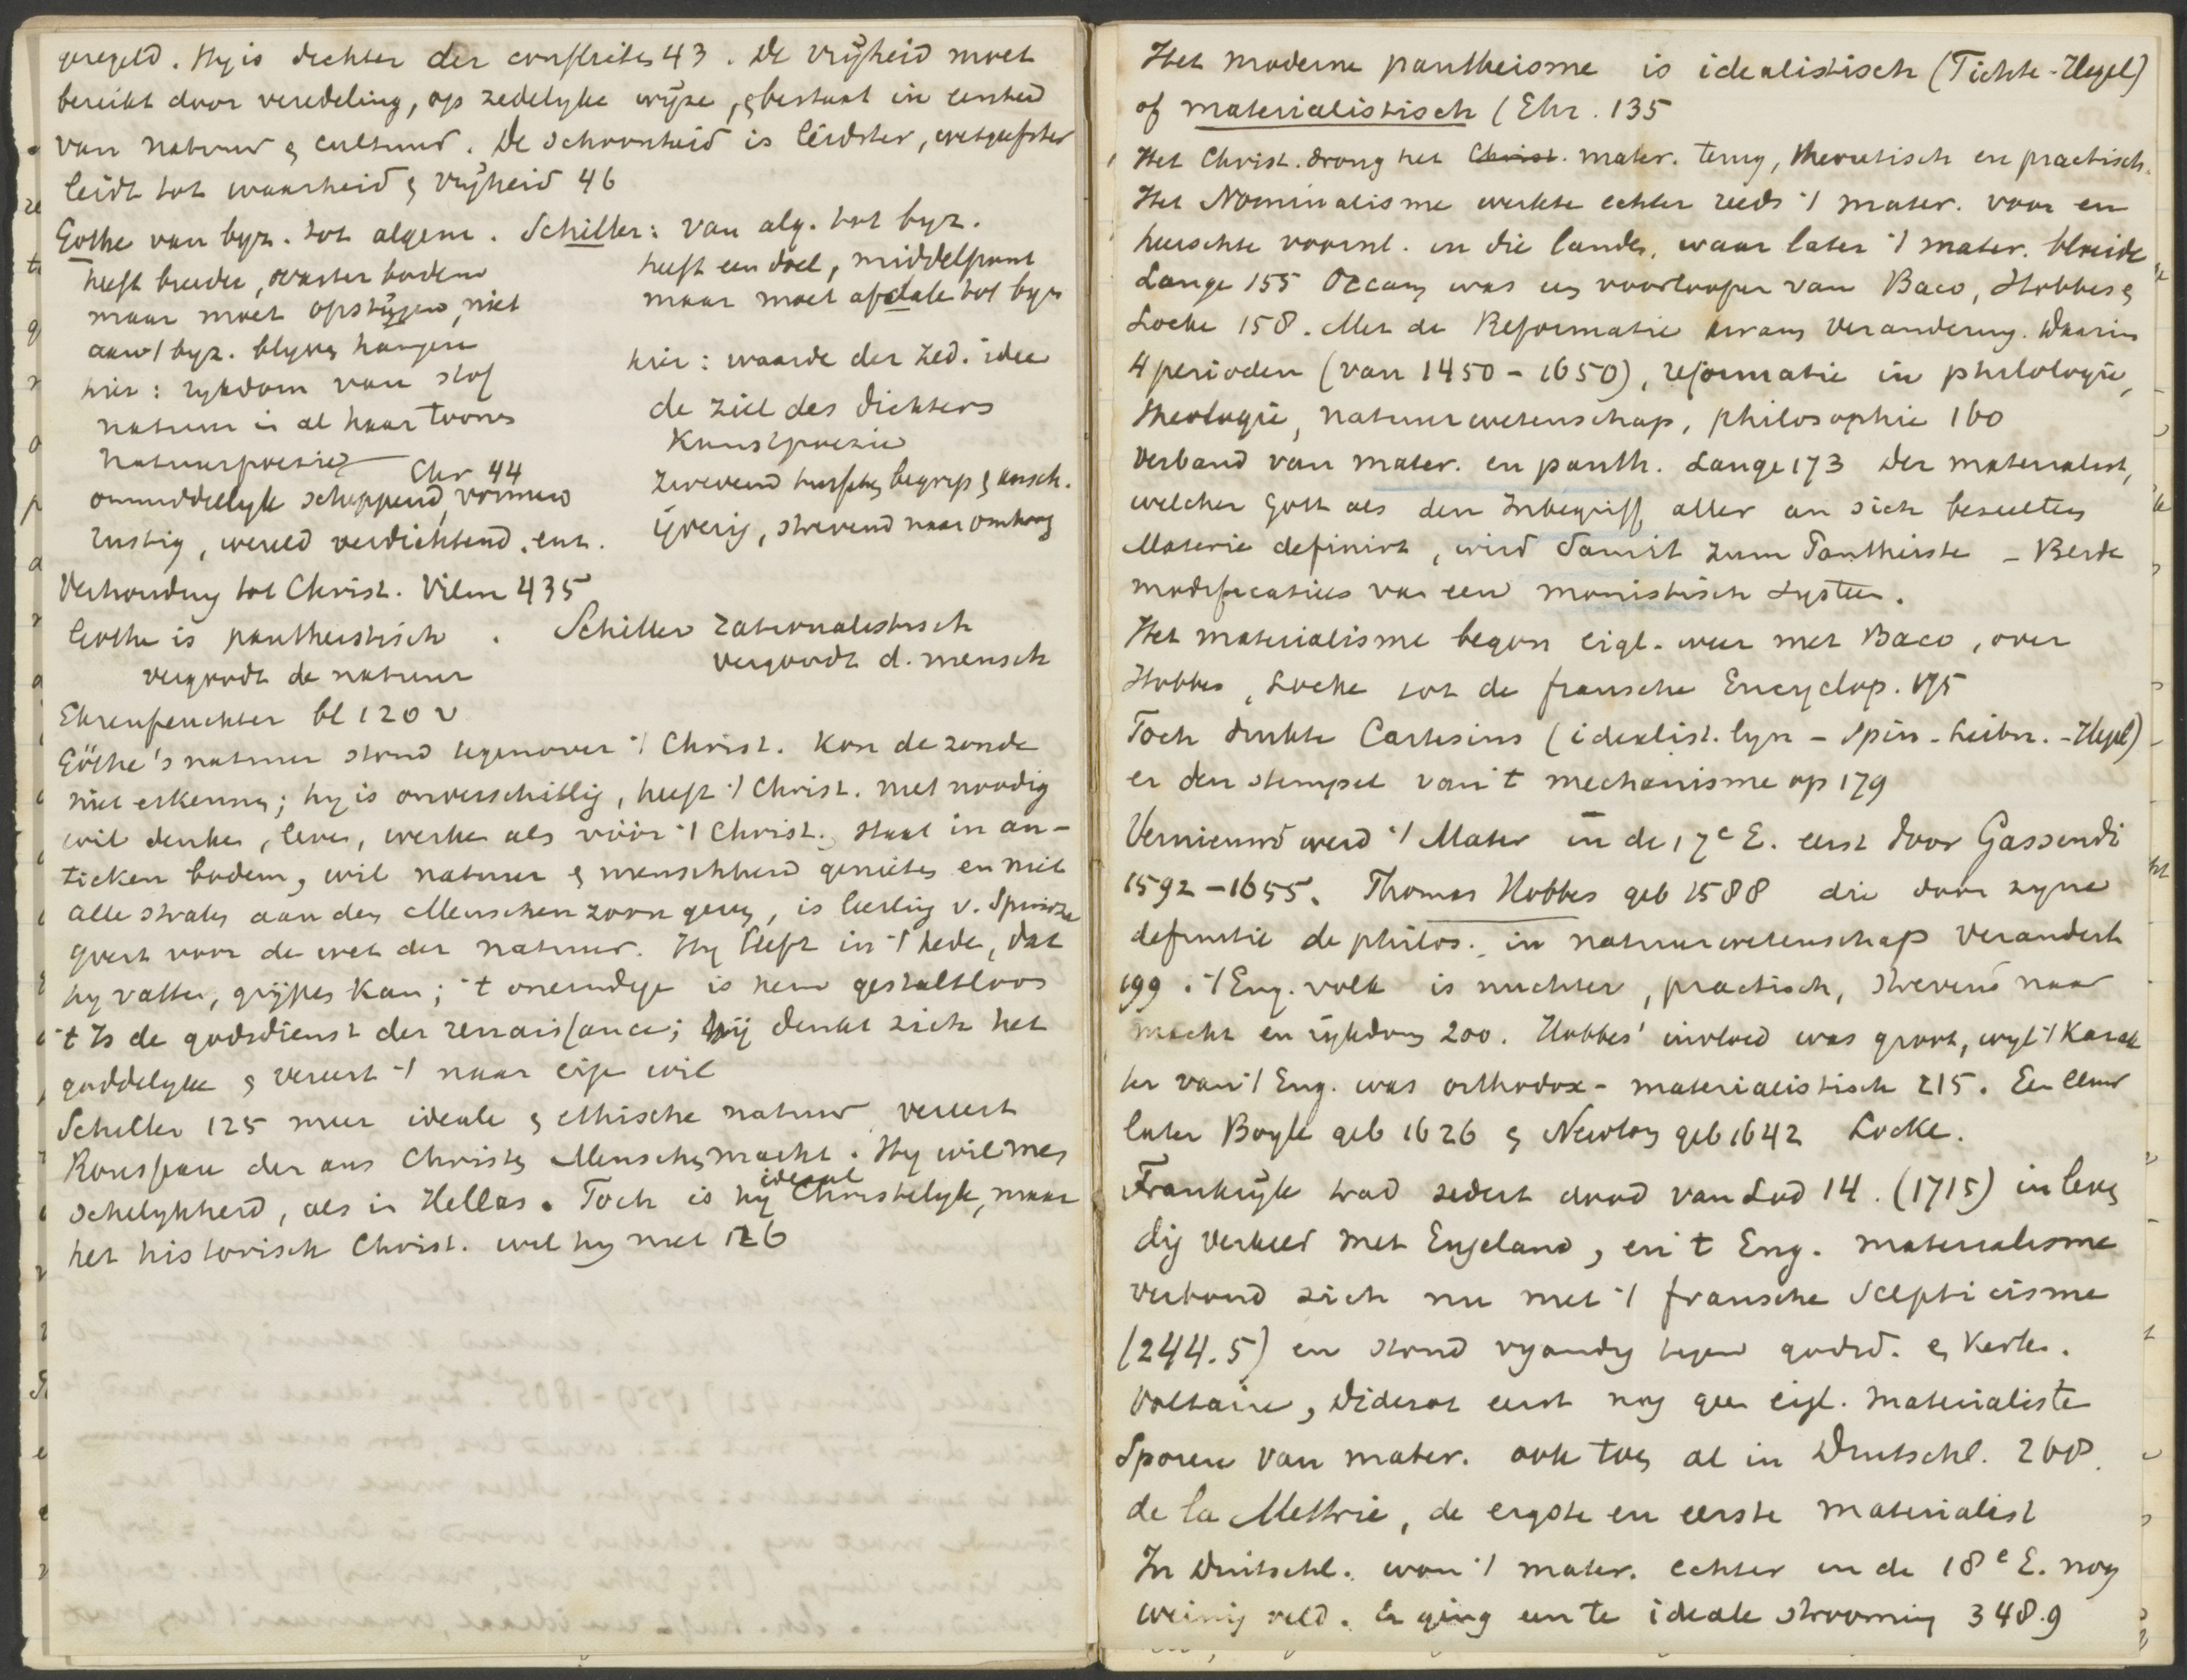 geregeld. Hy is dichter der conflicten 43. De vrijheid moet
bereikt door veredeling, op zedelyke wijze, & bestaat in eenheid
van natuur & cultuur. De schoonheid is leidster, wetgeefster
leidt tot waarheid & vrijheid 46
Göthe van byz. tot algem. Schiller: van alg. tot byz.
heeft breeder, vaster bodem
maar moet opstijgen, niet
aan 't byz. blyven hangen
hier: rykdom van stof
natuur in al haar toones
natuurpoezie Chr 44
onmiddellyk scheppend, vormend
rustig, wereld verdichtend. ent.
heeft een doel, middelpunt
maar moet afdale tot byz
hier: waarde der zed. idee
de ziel des dichters
Kunstpoezie
zwevend tusschen begrip & aansch.
ijverig, strevend naar omhoog
Verhouding tot Christ. Vilm 435
Göthe is pantheistisch. Schiller rationalistisch
vergoodt de natuur
vergoodt d. mensch
Ehrenfeuchter bl 120 v
Göthe's natuur stond tegenover 't Christ. Kon de zonde
niet erkennen; hy is onverschillig, heeft 't Christ. niet noodig
wil denken, leven, werken als vóór 't Christ. staat in an-
tieken bodem, wil natuur & menschheid genieten en niet
alle straten aan den Menschenzoon geven, is leerling v. Spinoza
yvert voor de wet der natuur. Hy leeft in 't hede, dat
hy vatten, grijpen kan; 't oneindige is hem gestaltloos
't Is de godsdienst der renaissance; hij denkt zich het
goddelyke & vereert 't naar eige wil
Schiller 125 meer ideale & ethische natuur vereert
Rousseau der aus Christen Menschen macht. Hy wil men
schelykheid, als in Hellas. Toch is hy ideaal Christelyk, maar
het historisch Christ. wil hy niet 126
Het moderne pantheisme is idealistisch (Fichte-Hegel)
of materialistisch (Ehr. 135
Het Christ. drong het Christ. mater. terug, theoretisch en practisch.
Het Nominalisme werkte echter reeds 't mater. voor en
heerschte voornl. in die landen, waar later 't mater. bloeide
Lange 155 Occam was een voorlooper van Baco, Hobbes &
Locke 158. Met de Reformatie kwam verandering. Daarin
4 perioden (van 1450-1650), reformatie in philologie,
theologie, natuurwetenschap, philosophie 160
Verband van mater. en panth. Lange 173 Der materialist,
welcher Gott als den Inbegriff aller an sich beseelten
Materie definirt, wird damit zum Pantheiste - Beide
modificaties van een monistisch system.
Het materialisme begon eigl. weer met Baco, over
Hobbes, Locke tot de fransche Encyclop. 175
Toch drukte Cartesius (idealist. lyn - Spin - Leibn. - Hegel)
er den stempel van 't mechanisme op 179
Vernieuwd werd 't Mater in de 17e E. eerst door Gassendi
1592-1655. Thomas Hobbes geb 1588 die door zyne
definitie de philos. in natuurwetenschap verandert
199. 't Eng. volk is nuchter, practisch, strevend naar
macht en rijkdom 200. Hobbes' invloed was groot, wyl 't Karak
ter van 't Eng. was orthodox-materialistisch 215. Een eeuw
later Boyle geb 1626 & Newton geb 1642 Locke.
Frankrijk trad sedert dood van Lod 14. (1715) in leven
dig verkeer met Engeland, en 't Eng. materialisme
verbond zich nu met 't fransche Scepticisme
(244.5) en stond vyandig tegen godsd. en Kerk.
Voltaire, Diderot eerst nog geen eigl. materialiste
Sporen van mater. ook toen al in Duitschl. 268.
de la Mettrie, de ergste en eerste materialist
In Duitschl. won 't mater. echter in de 18e E. nog
weinig veld. Er ging een te ideale strooming 348.9